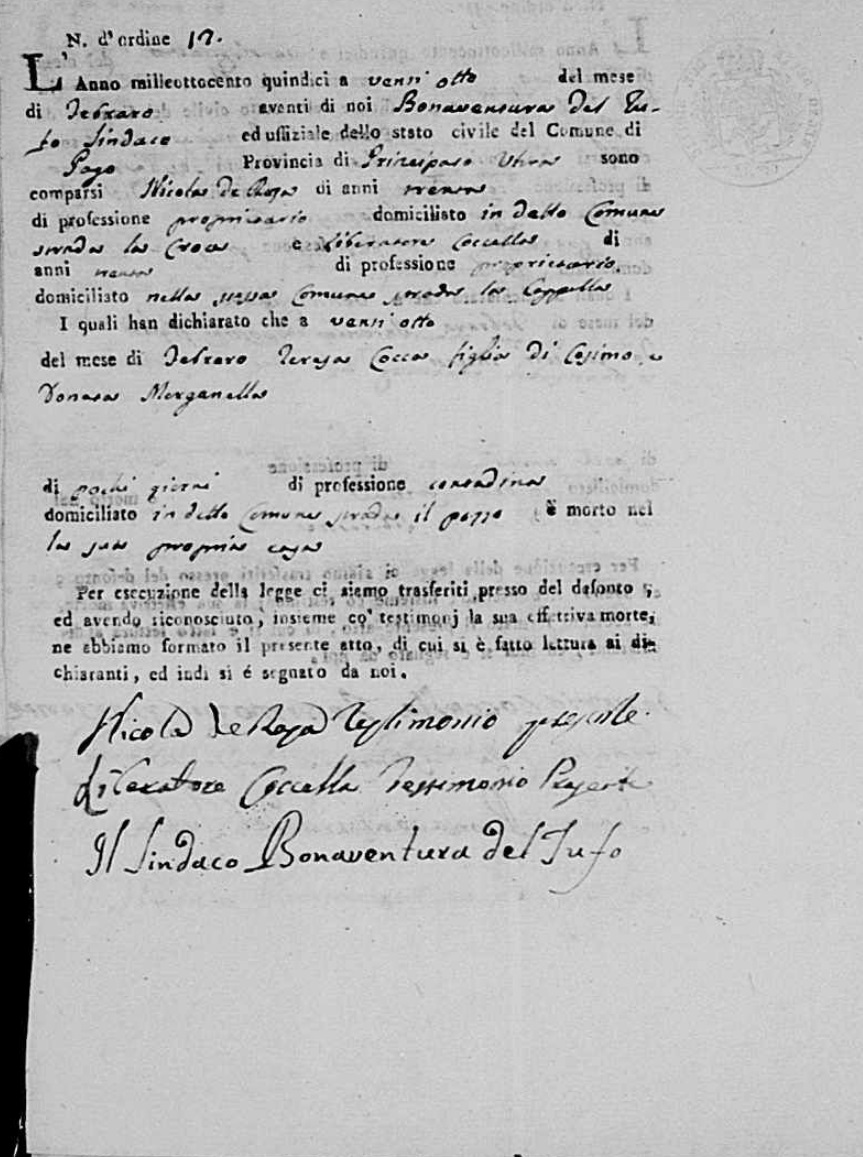 N. d'ordine 12.
L'Anno milleottocento quindici a venti otto del mese
di Febraro avanti di noi Bonaventura Del Tu-
fo Sindaco ed uffiziale dello stato civile del Comune di
Pago Provincia di Principato Ultra sono
comparsi Nicola De Rosa di anni trenta
di professione proprietario domiciliato in detto Comune
strada la Croce e Liberatore Coccella di
anni trenta di professione proprietario
domiciliato nella stessa Comune strada la Cappella
I quali han dichiarato che a venti otto
del mese di Febraro Teresa Cocca figlia di Cosimo e
Donata Morganella
di pochi giorni di professione contadina
domiciliato in detto Comune strada il pozzo è morto nel
la sua propria casa
Per esecuzione della legge ci siamo trasferiti presso del defonto ;
ed avendo riconosciuto, insieme co' testimonj la sua effettiva morte,
ne abbiamo formato il presente atto, di cui si è fatto lettura ai di-
chiaranti, ed indi si é segnato da noi.
Nicola De Rosa Testimonio presente.
Liberatore Coccella Testimonio Presente
Il Sindaco Bonaventura del Tufo